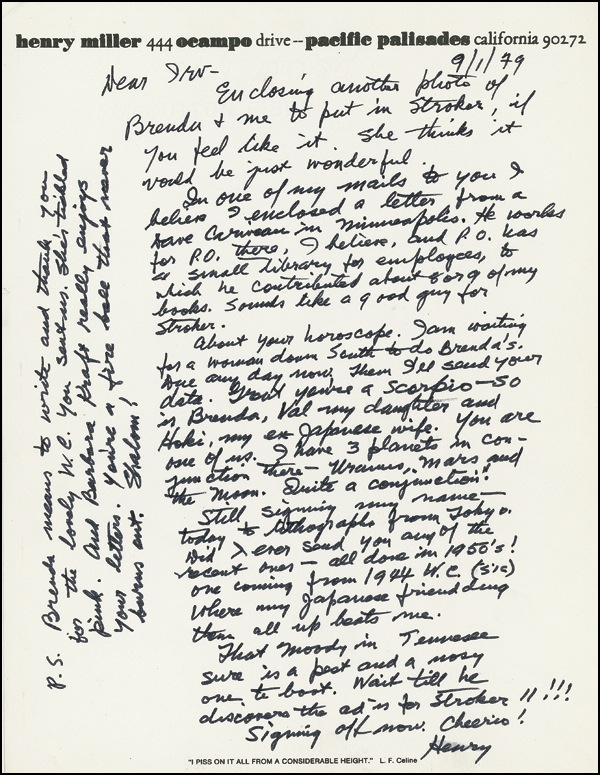 henry miller 444 ocampo drive -- pacific palisades california 90272
9/1/79
Dear Irv -
Enclosing another photo of
Brenda & me to put in Stroker, if
you feel like it. She thinks it
would be just wonderful.
In one of my mails to you I
believe I enclosed a letter from a
Dave in Minneapolis. He works
for P.O. there, I believe, and P.O. has
a small library for employees, to
which he contributed about 8 or 9 of my
books. Sounds like a good guy for
Stroker.
About your horoscope. I am waiting
for a woman down South to do Brenda's.
Due any day now. Then I'll send your
data. Great you're a Scorpio - So
is Brenda, Val - my daughter and
Hoki, my ex Japanese wife. You are
one of us. I have 3 planets in con-
junction there - Uranus, Mars and
the Moon. Quite a "conjunction"!
Still signing my name -
today to lithographs from Tokyo.
Did I ever send you any of the
recent ones - all done in 1950's!
one coming from 1944 W.C. (s's)
Where my Japanese friend dug
them all up beats me.
That Moody in Tennessee
sure is a pest and a nosy
one to boot. Wait till he
discovers the ad is for Stroker !! !!!
Signing off now. Cheerio!
Henry
P.S. Brenda means to write and thank you
for the lovely W.C. You sent us. She's tickled
pink. And Barbara Kraft really enjoys
your letters. You're a fire ball that never
burns out. Shalom!
"I PISS ON IT ALL FROM A CONSIDERABLE HEIGHT." L. F. Celine